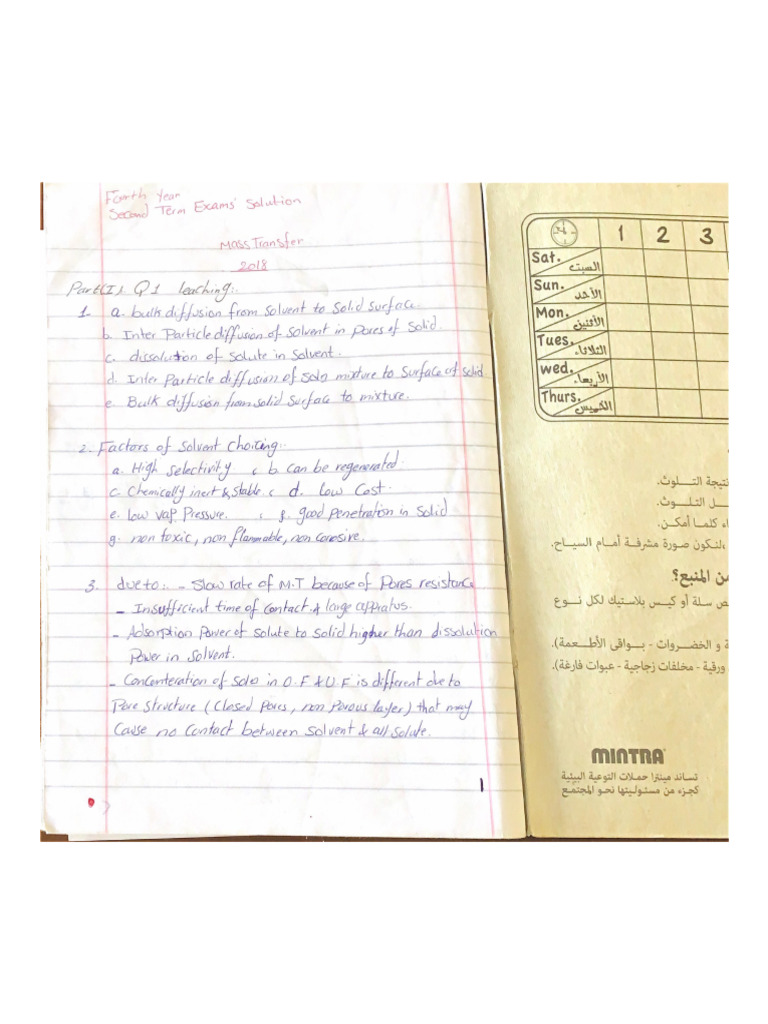 Fourth Year
Second Term Exams' Solution
Mass Transfer
2018
Part(I): Q1 leaching:-
1- a. bulk diffusion from solvent to solid surface.
b. Inter Particle diffusion of solvent in pores of solid.
c. dissolution of solute in solvent.
d. Inter Particle diffusion of soln mixture to surface of solid
e. Bulk diffusion from solid surface to mixture.
2. Factors of solvent choicing:-
a. High selectivity , b can be regenerated.
c. Chemically inert & stable. , d. low cost.
e. low vap pressure. , f. good penetration in solid
g. non toxic, non flammable, non corrosive.
3. due to:- - slow rate of M.T because of pores resistance
- Insufficient time of contact & large apparatus.
- Adsorption power of solute to solid higher than dissolution
power in solvent.
- Concenteration of soln in O.F & U.F is different due to
Pore structure (closed pores, non porous layer) that may
cause no contact between solvent & all solute.
1
1 2 3
Sat. السبت
Sun. الأحد
Mon. الأثنين
Tues. الثلاثاء
wed. الأربعاء
Thurs. الخميس
نتيجة التلوث.
ـل التلوث.
اء كلما أمكن.
لتكون صورة مشرفة أمام السياح.
من المنبع؟
ص سلة أو كيس بلاستيك لكل نوع
ة و الخضروات - بواقى الأطعمة).
ورقية - مخلفات زجاجية - عبوات فارغة).
MINTRA
تساند مينترا حملات التوعية البيئية
كجزء من مسئوليتها نحو المجتمع